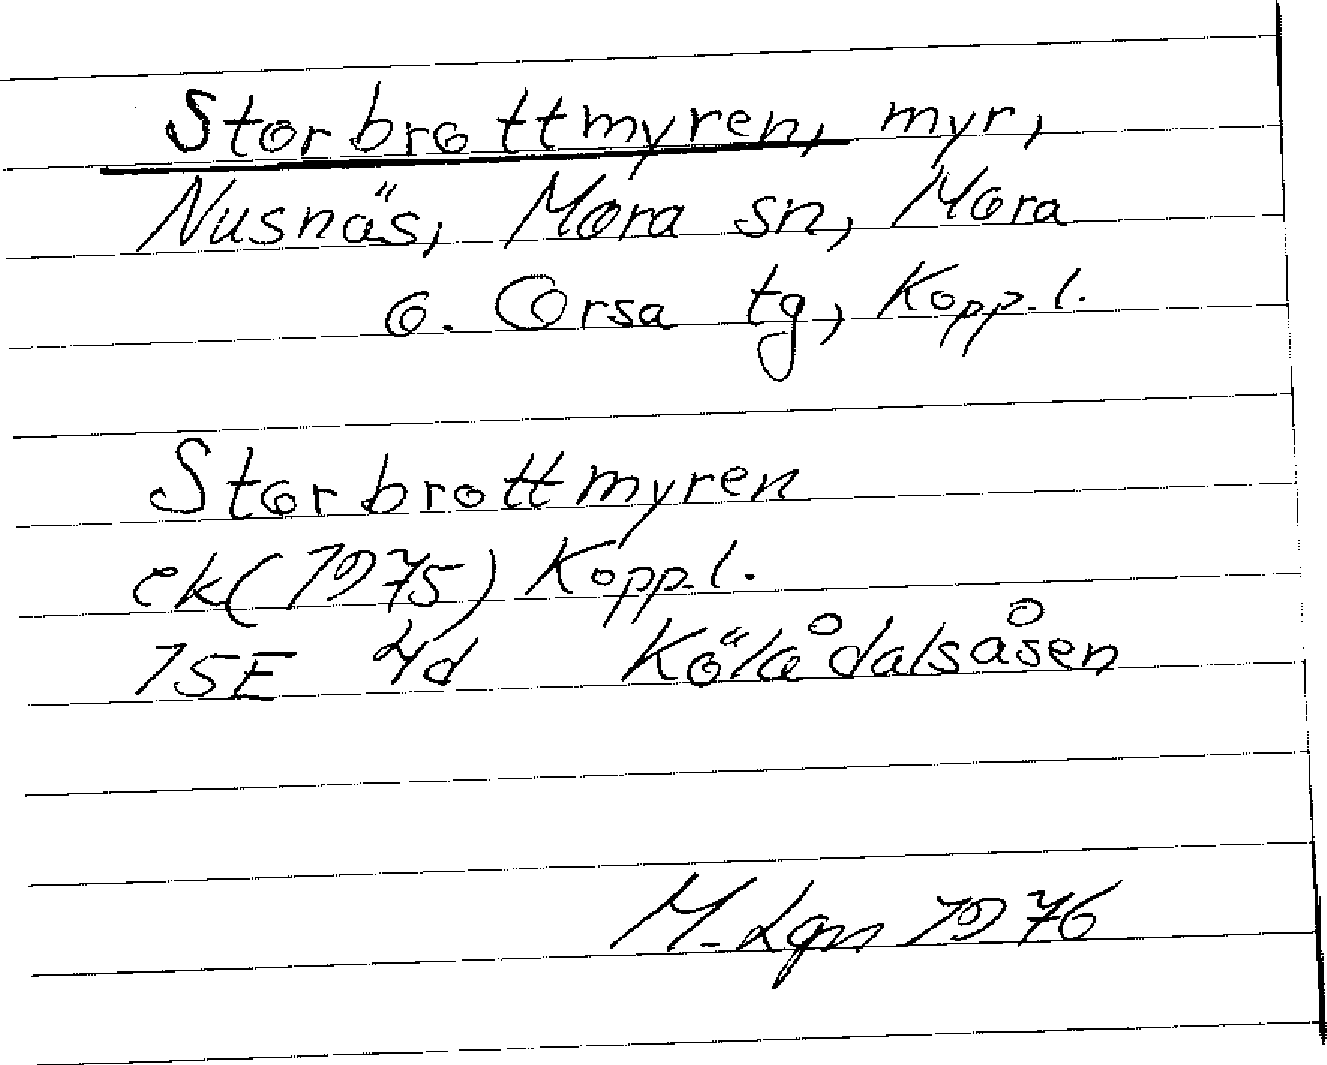 Storbrottmyren, myr,
Nusnäs, Mora sn, Mora
o. Orsa tg, Kopp. l.
Storbrottmyren
ek (1975) Kopp. l.
15E 4d Kölådalsåsen
M. Lgn 1976